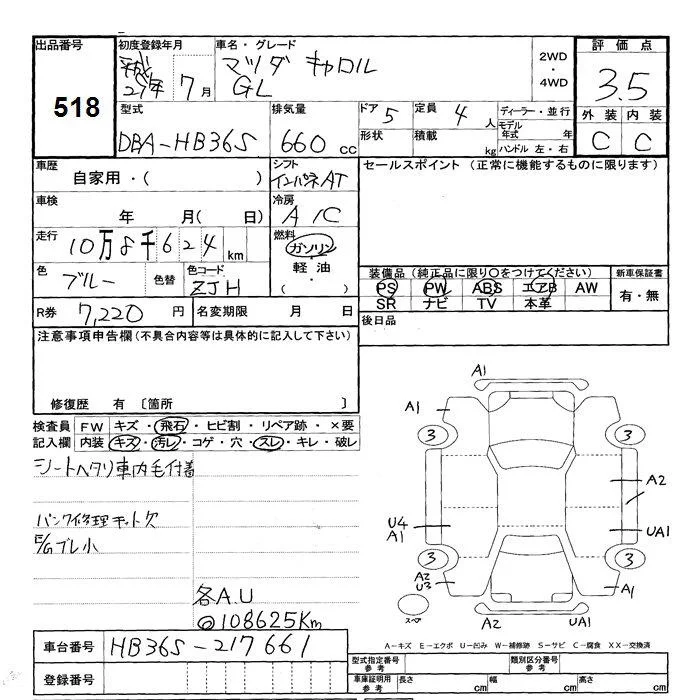 出品番号 初度登録年月 車名・グレード 評価点
518 平成29年7月 マツダ キャロル GL 2WD・4WD 3.5
型式 排気量 ドア 5 定員 4人 ディーラー・並行 外装 内装
DBA-HB36S 660cc 形状 積載 kg モデル年式 年 ハンドル 左・右 C C
車歴 シフト セールスポイント (正常に機能するものに限ります)
自家用・( ) インパネAT
車検 冷房
年 月( 日) A/C
走行 燃料
10万8千624km ガソリン・軽油・( )
色 色替 色コード 装備品(純正品に限り○をつけてください) 新車保証書
ブルー ZJH PS PW ABS エアB AW 有・無
SR ナビ TV 本革
R券 7,220円 名変期限 月 日 後日品
注意事項申告欄(不具合内容等は具体的に記入して下さい)
修復歴 有 〔箇所 〕
検査員記入欄 FW キズ・飛石・ヒビ割・リペア跡・×要
内装 キズ・汚レ・コゲ・穴・スレ・キレ・破レ
シートヘタリ車内毛付着
パンク修理キット欠
E/Gブレ小
各A.U
@108625Km
A1
A1
3 3
A2
U4 A1 UA1
3 3
A2 U3 A1
スペア A2 UA1
A-キズ E-エクボ U-凹み W-補修跡 S-サビ C-腐食 XX-交換済
車台番号 HB36S-217661 型式指定番号 参考 類別区分番号 参考
登録番号 車庫証明用 参考 長さ cm 幅 cm 高さ cm